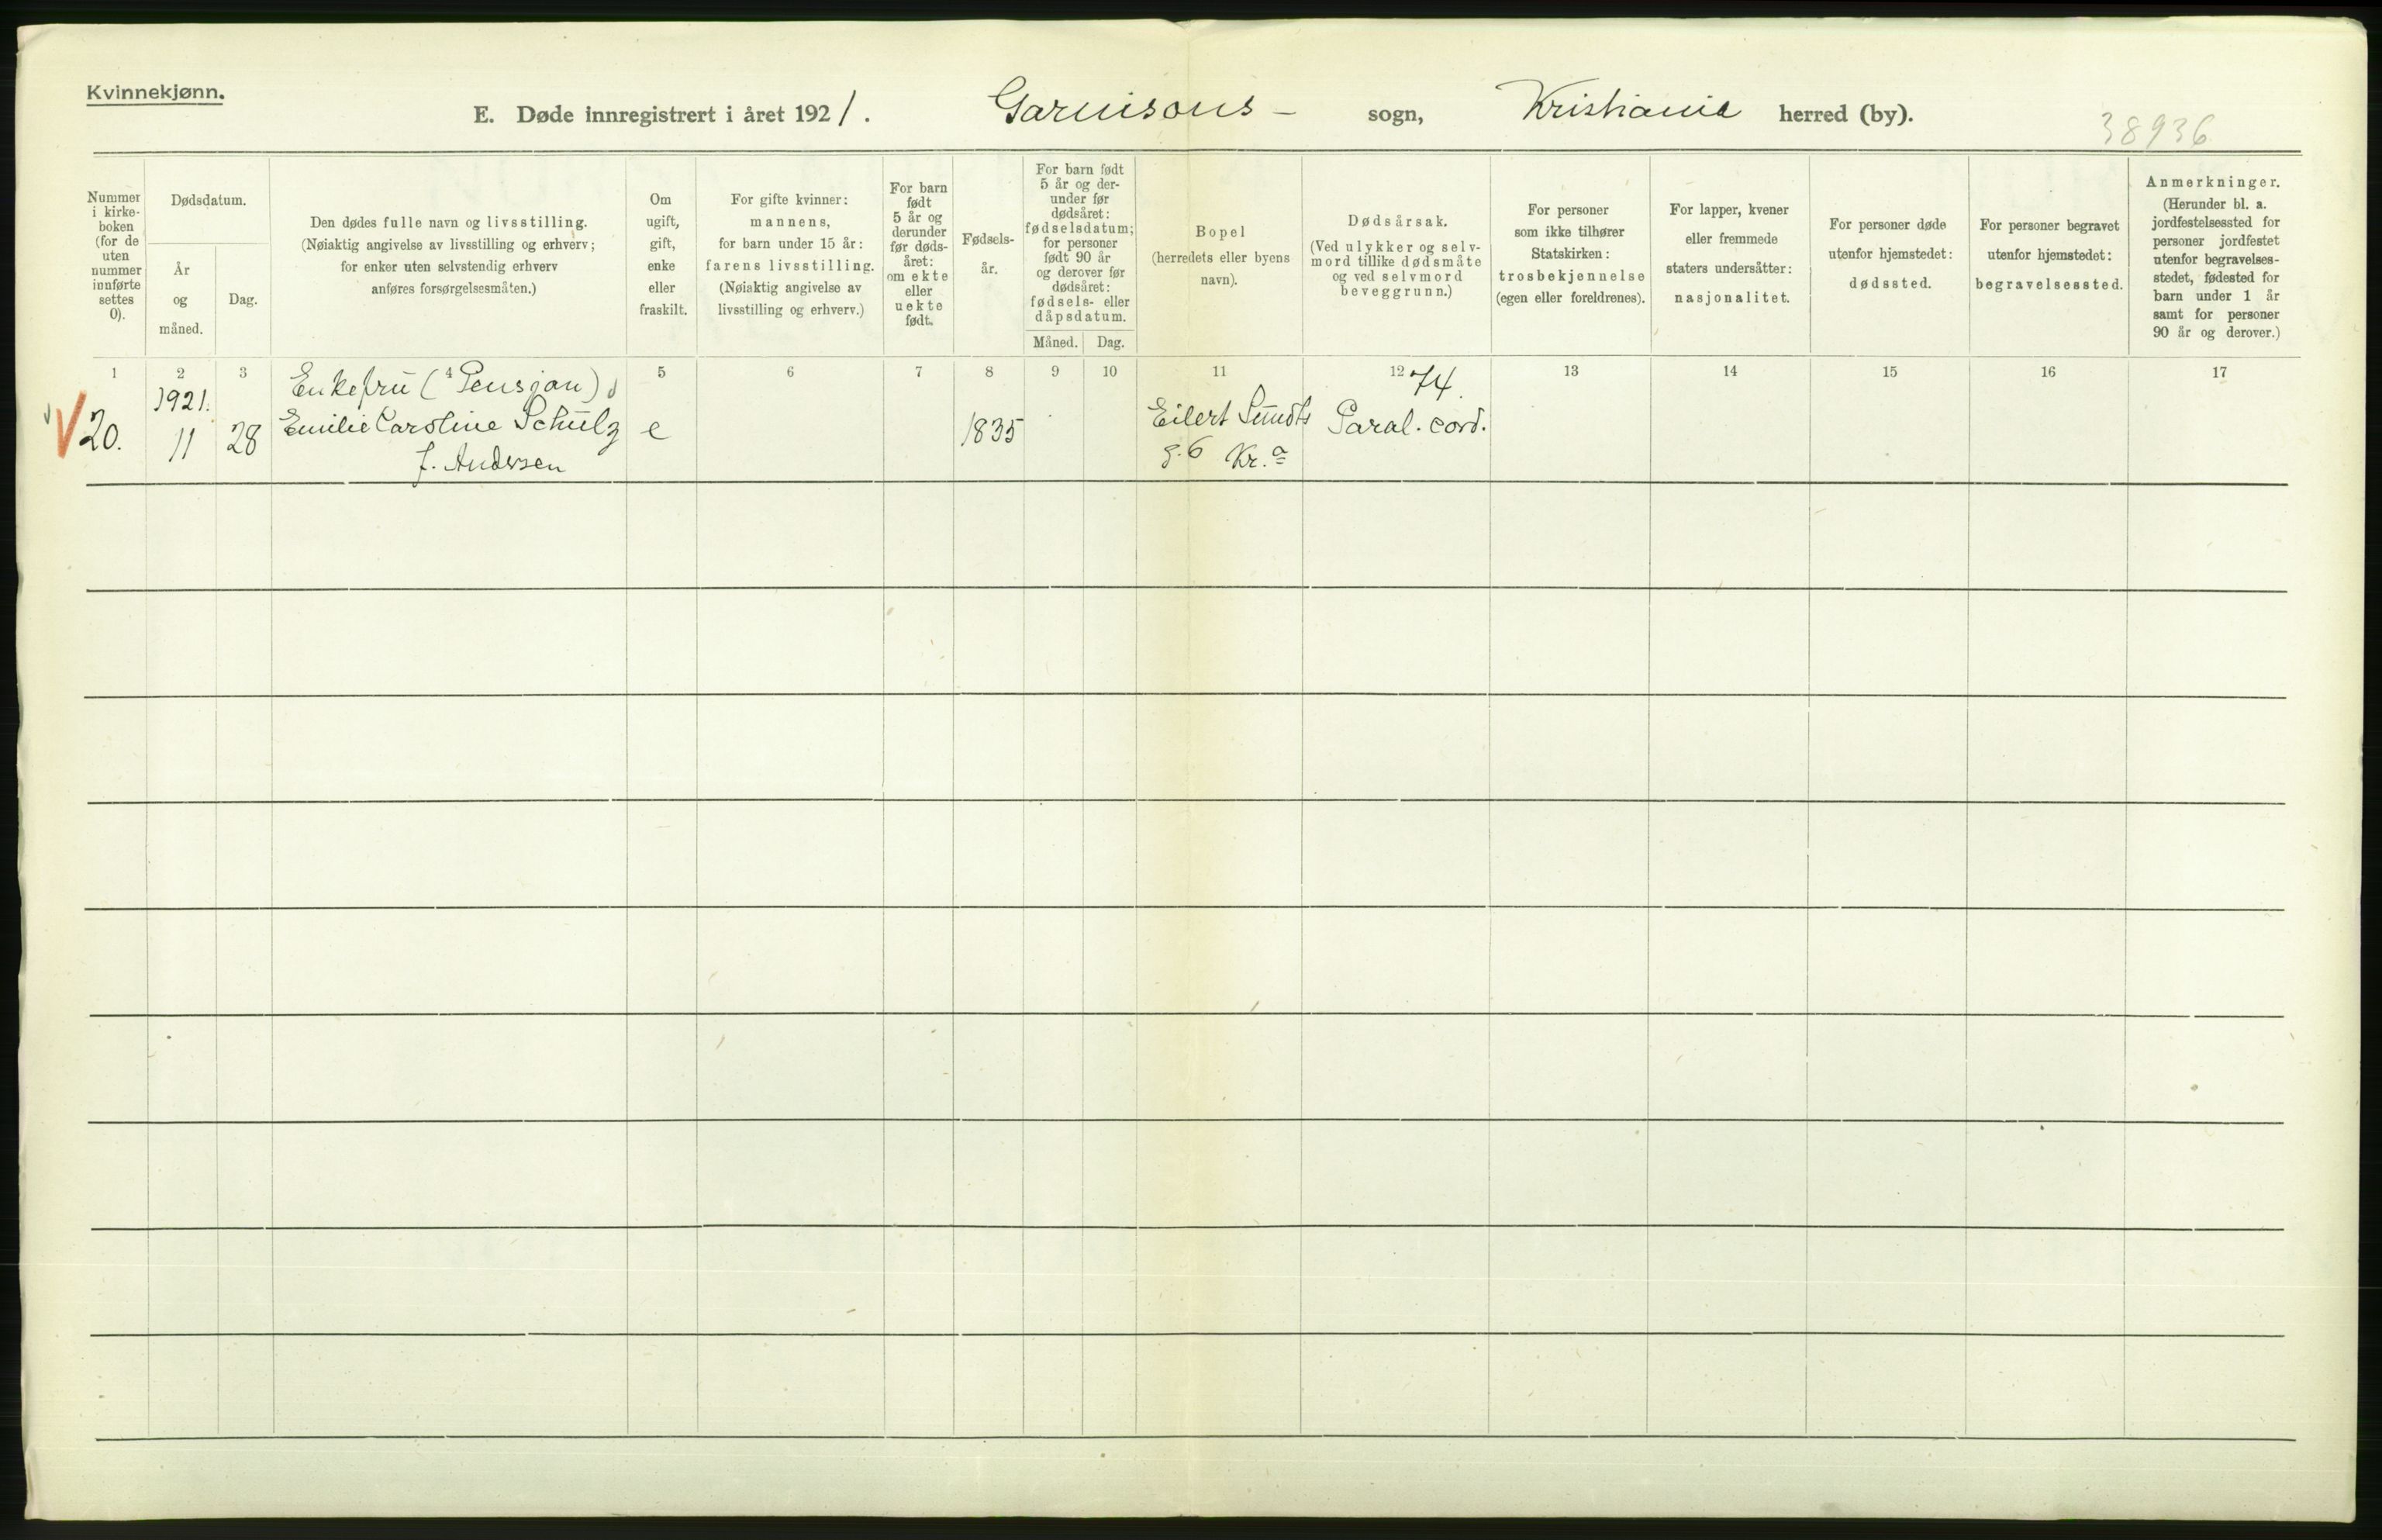 Kvinnekjønn.
E. Døde innregistrert i året 1921. Garnisons - sogn, Kristiania herred (by).
38936
Nummer i kirke- boken (for de uten nummer innførte settes 0).
Dødsdatum.
År og måned.
Dag.
Den dødes fulle navn og livsstilling.
(Nøiaktig angivelse av livsstilling og erhverv;
for enker uten selvstendig erhverv
anføres forsørgelsesmåten.)
Om
ugift,
gift,
enke
eller
fraskilt.
For gifte kvinner:
mannens,
for barn under 15 år:
farens livsstilling.
(Nøiaktig angivelse av
livsstilling og erhverv.)
For barn
født
5 år og
derunder
før døds-
året:
om ekte
eller
uekte
født.
Fødsels-
år.
For barn født
5 år og der-
under før
dødsåret:
fødselsdatum;
for personer
født 90 år
og derover før
dødsåret:
fødsels- eller
dåpsdatum.
Måned. Dag.
Bopel
(herredets eller byens
navn).
Dødsårsak.
(Ved ulykker og selv-
mord tillike dødsmåte
og ved selvmord
beveggrunn.)
For personer
som ikke tilhører
Statskirken:
trosbekjennelse
(egen eller foreldrenes).
For lapper, kvener
eller fremmede
staters undersåtter:
nasjonalitet.
For personer døde
utenfor hjemstedet:
dødssted.
For personer begravet
utenfor hjemstedet:
begravelsessted.
Anmerkninger.
(Herunder bl. a.
jordfestelsessted for
personer jordfestet
utenfor begravelses-
stedet, fødested for
barn under 1 år
samt for personer
90 år og derover.)
1 2 3 4 5 6 7 8 9 10 11 12 13 14 15 16 17
1921. Enkefru (Pensjon) 74.
20. 11 28 Emilie Caroline Schulz e 1835 Eilert Sundts Paral. cord.
f. Andersen g. 6 Kr.a